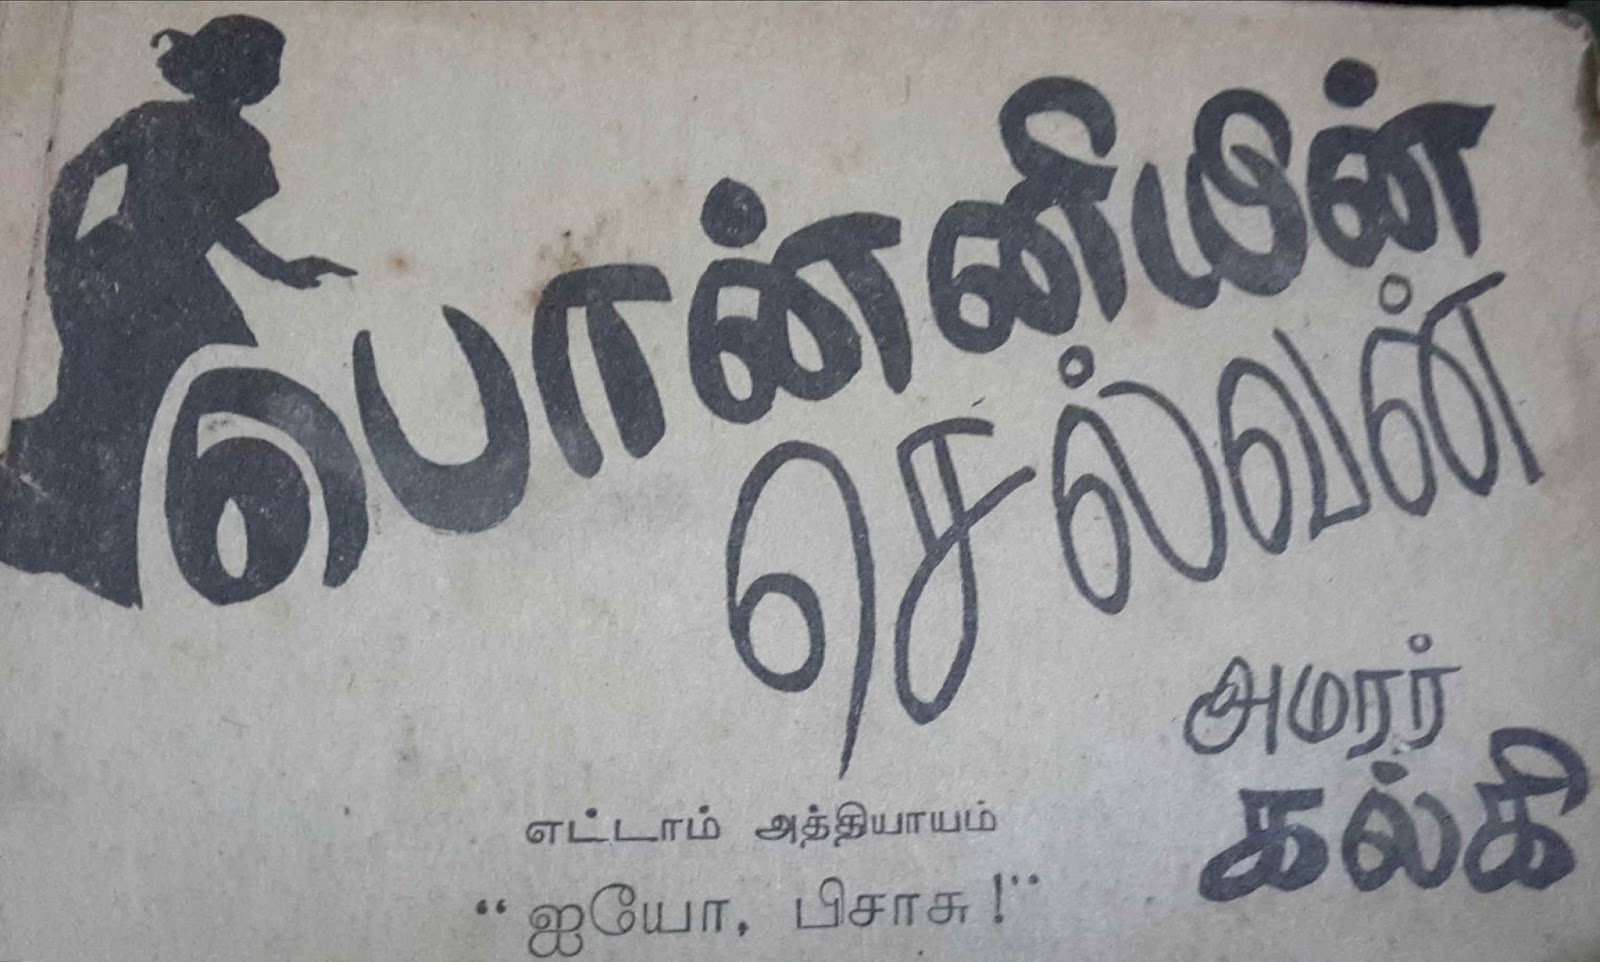 பொன்னியின்
செல்வன்
அமரர்
கல்கி
எட்டாம் அத்தியாயம்
“ ஐயோ, பிசாசு ! ”